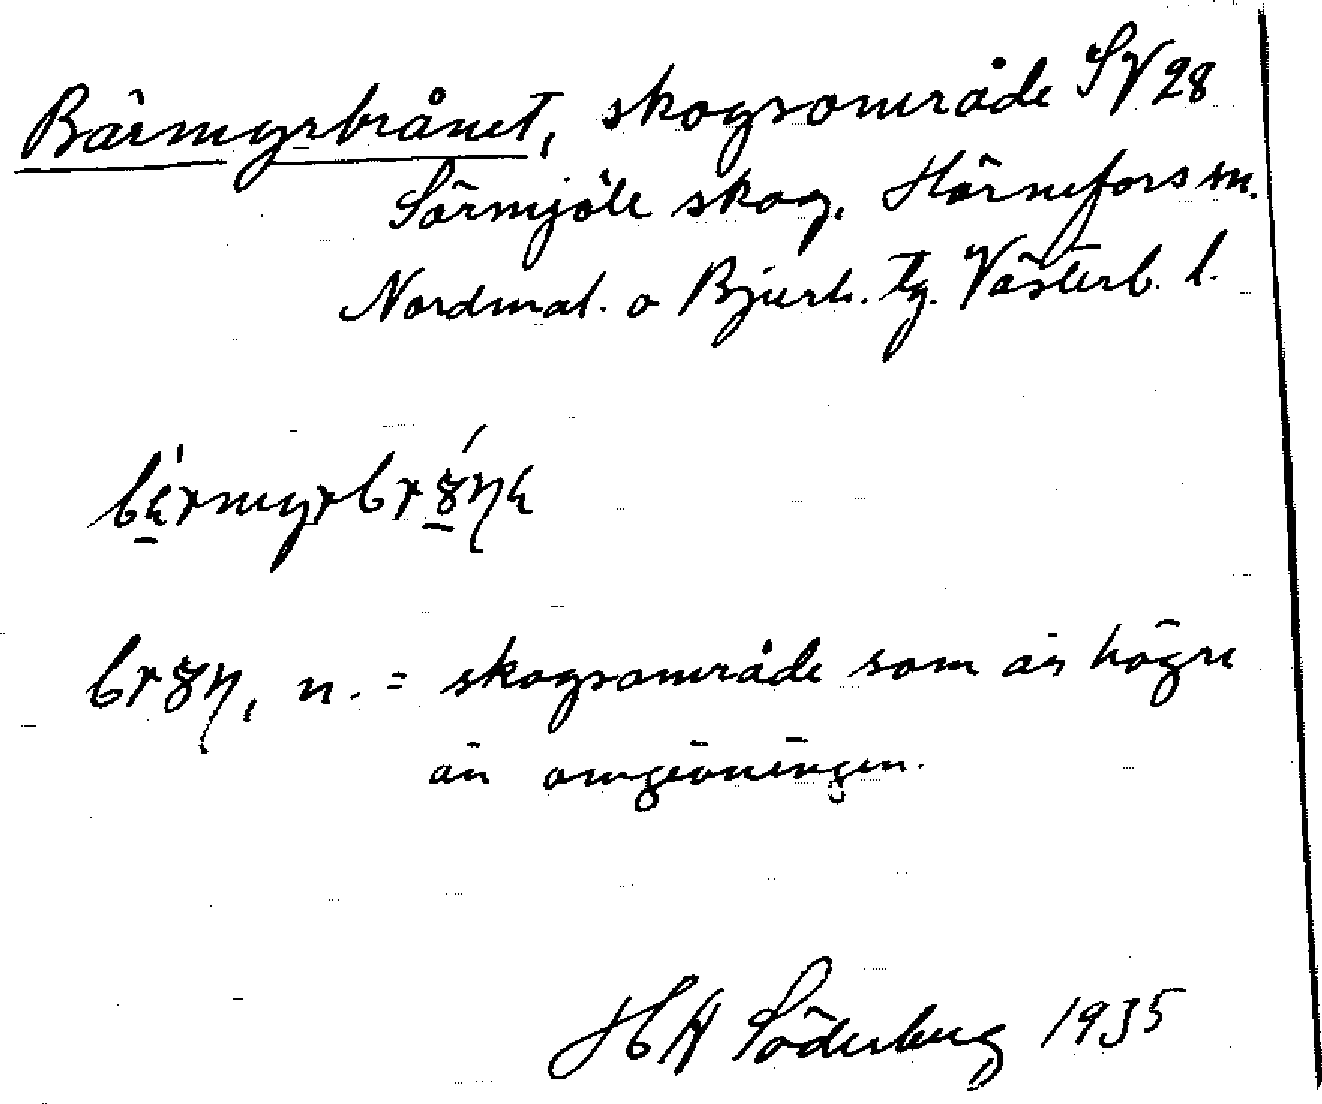 Bärmyrbrånet, skogsområde SV 28
Sörmjöle skog, Hörnefors sn.
Nordmal. o Bjurh. tg. Västerb. l.
n. = skogsområde som är högre
än omgivningen.
H A Söderberg 1935